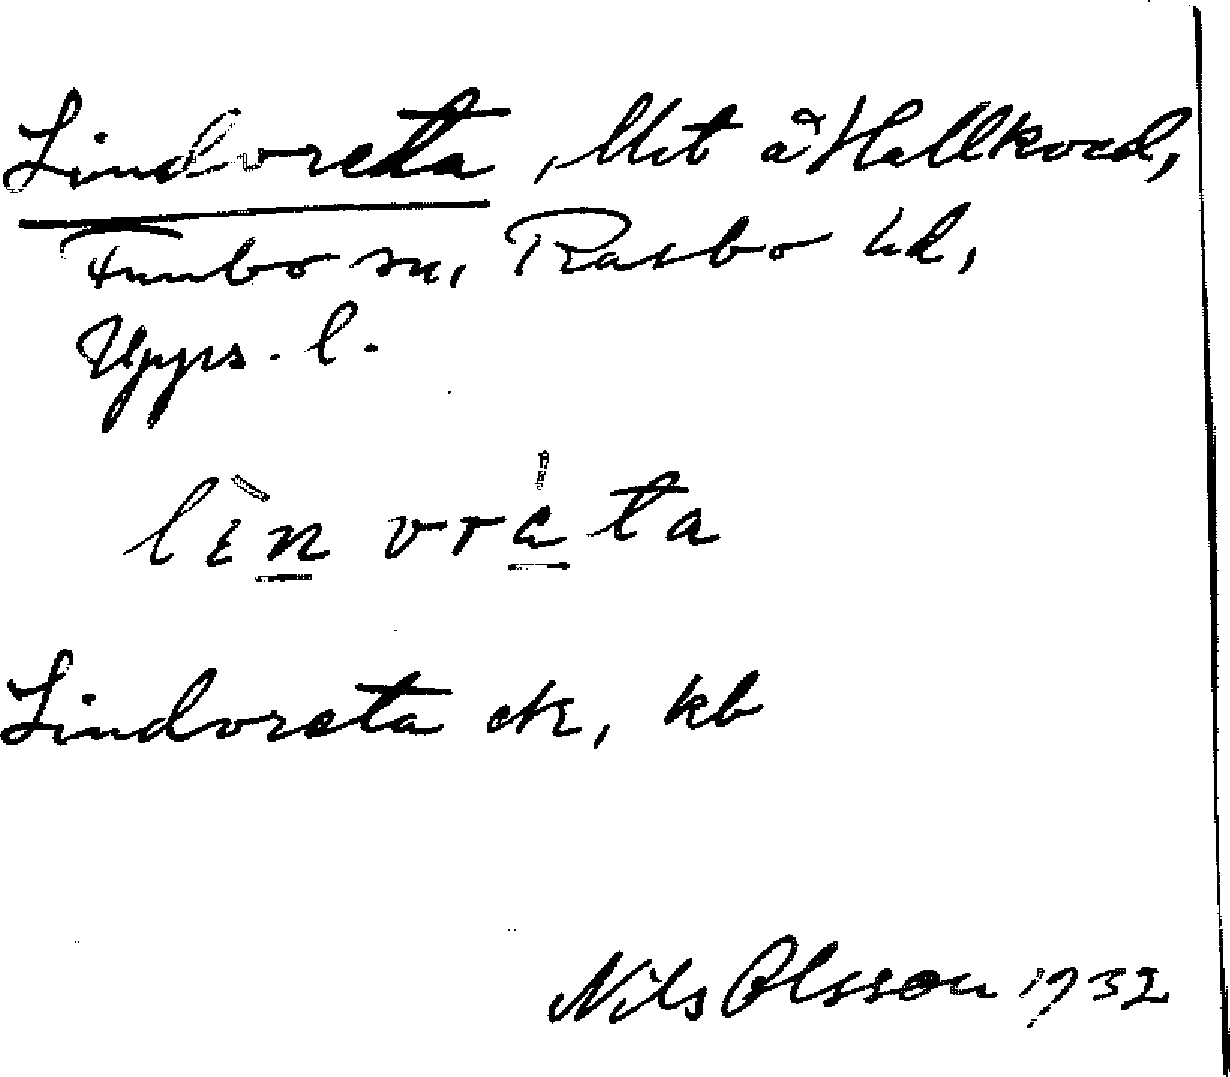 Lindvreta, lht å Hallkved,
Funbo sn, Rasbo hd,
Upps. l.
lèn vrèta
Lindvreta ek, kb
Nils Olsson 1932